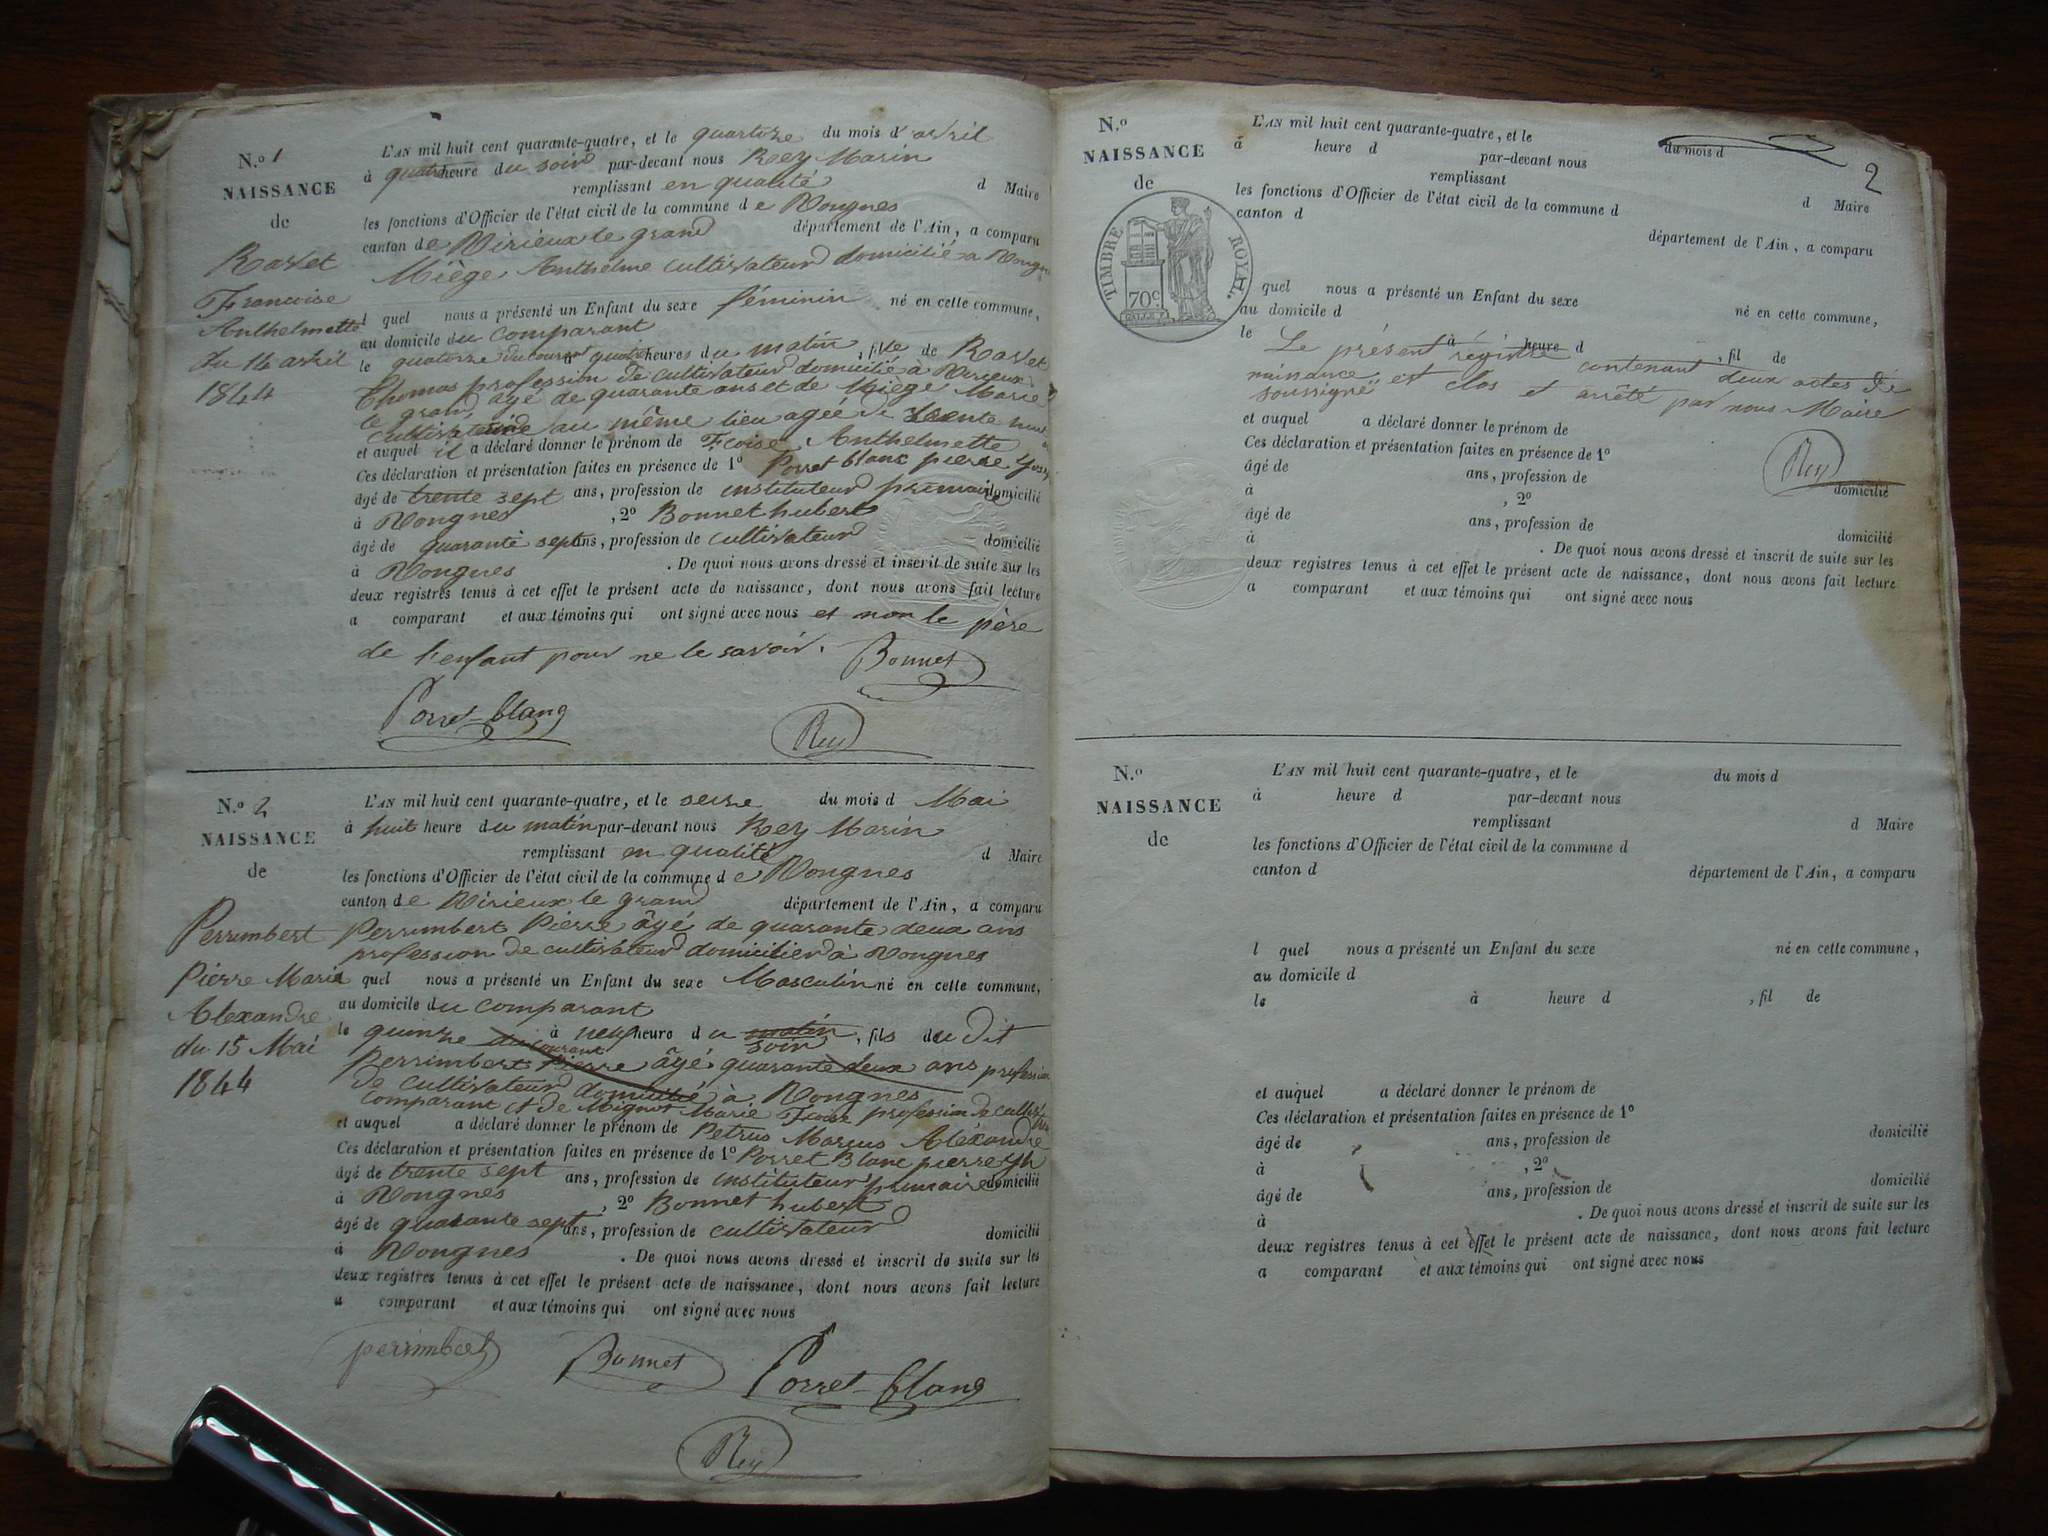 N.o 1
NAISSANCE
de
Ravet
Francoise
Anthelmette
du 14 avril
1844
L'AN mil huit cent quarante-quatre, et le quartorze du mois d'avril
à quatre heure du soir par-devant nous Rey Marin
remplissant en qualité d Maire
les fonctions d'Officier de l'état civil de la commune de Vongnes
canton de Virieux le grand département de l'Ain, a comparu
Miège Anthelme cultivateur domicilié a Vongnes
l quel nous a présenté un Enfant du sexe féminin né en cette commune,
au domicile du comparant
le quatorze du courant quatre heures du matin, fille de Ravet
Thomas profession de cultivateur domicilié à Virieux
le grand, agé de quarante ans et de Miège Marie
au même lieu agée de trente
et auquel il a déclaré donner le prénom de Fcoise Anthelmette
Ces déclaration et présentation faites en présence de 1o Porret blanc pierre
âgé de trente sept ans, profession de instituteur primaire domicilié
à Vongnes, 2o Bonnet hubert
âgé de quarante sept ans, profession de cultivateur domicilié
à Vongnes. De quoi nous avons dressé et inscrit de suite sur les
deux registres tenus à cet effet le présent acte de naissance, dont nous avons fait lecture
a comparant et aux témoins qui ont signé avec nous et non le père
de l'enfant pour ne le savoir.
Bonnet
Porret-blanc
Rey
N.o 2
NAISSANCE
de
Perrimbert
Pierre Marie
Alexandre
du 15 Mai
1844
L'AN mil huit cent quarante-quatre, et le seize du mois d Mai
à huit heure du matin par-devant nous Rey Marin
remplissant en qualité d Maire
les fonctions d'Officier de l'état civil de la commune de Vongnes
canton de Virieux le grand département de l'Ain, a comparu
Perrimbert Pierre âgé de quarante deux ans
profession de cultivateur domicilier à Vongnes
quel nous a présenté un Enfant du sexe Masculin né en cette commune,
au domicile du comparant
le quinze du courant à neuf heure du matin soir, fils du dit
Perrimbert Pierre âgé quarante deux ans profession
de cultivateur domicilié à Vongnes
comparant et de Mignot Marie Fcoise profession de
et auquel a déclaré donner le prénom de Petrus Marius Aléxandre
Ces déclaration et présentation faites en présence de 1o Porret Blanc pierre
âgé de trente sept ans, profession de instituteur primaire domicilié
à Vongnes, 2o Bonnet hubert
âgé de quarante sept ans, profession de cultivateur domicilié
à Vongnes. De quoi nous avons dressé et inscrit de suite sur les
deux registres tenus à cet effet le présent acte de naissance, dont nous avons fait lecture
a comparant et aux témoins qui ont signé avec nous
perrimbert
Bonnet
Porret-blanc
Rey
2
N.o
NAISSANCE
de
TIMBRE ROYAL
70c
L'AN mil huit cent quarante-quatre, et le du mois d
à heure d par-devant nous
remplissant d Maire
les fonctions d'Officier de l'état civil de la commune d
canton d département de l'Ain, a comparu
quel nous a présenté un Enfant du sexe né en cette commune,
au domicile d
le à heure d, fil de
Le présent régistre contenant deux actes de
naissance est clos et arrêté par nous Maire
soussigné
et auquel a déclaré donner le prénom de
Ces déclaration et présentation faites en présence de 1o
Rey
âgé de ans, profession de domicilié
à, 2o
âgé de ans, profession de domicilié
à. De quoi nous avons dressé et inscrit de suite sur les
deux registres tenus à cet effet le présent acte de naissance, dont nous avons fait lecture
a comparant et aux témoins qui ont signé avec nous
N.o
NAISSANCE
de
L'AN mil huit cent quarante-quatre, et le du mois d
à heure d par-devant nous
remplissant d Maire
les fonctions d'Officier de l'état civil de la commune d
canton d département de l'Ain, a comparu
l quel nous a présenté un Enfant du sexe né en cette commune,
au domicile d
le à heure d, fil de
et auquel a déclaré donner le prénom de
Ces déclaration et présentation faites en présence de 1o
âgé de ans, profession de domicilié
à, 2o
âgé de ans, profession de domicilié
à. De quoi nous avons dressé et inscrit de suite sur les
deux registres tenus à cet effet le présent acte de naissance, dont nous avons fait lecture
a comparant et aux témoins qui ont signé avec nous